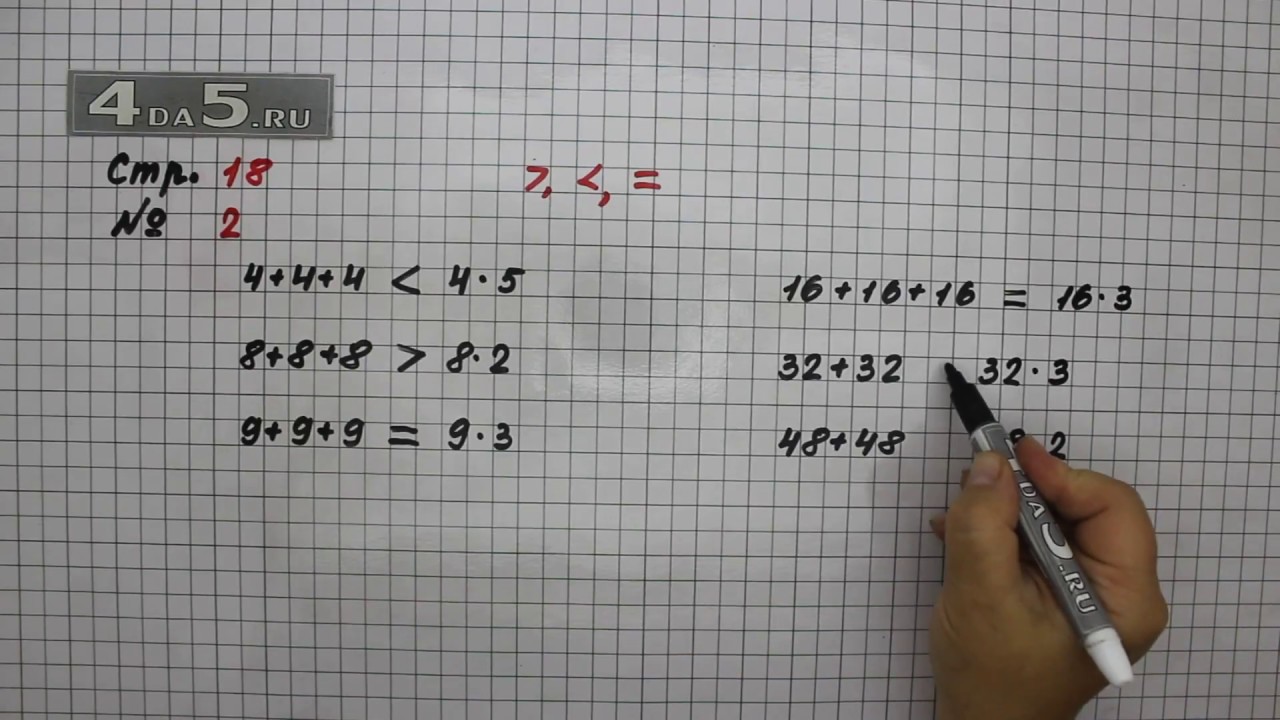 4DA5.RU
Стр. 18
>, <, =
№ 2
4+4+4 < 4·5
8+8+8 > 8·2
9+9+9 = 9·3
16+16+16 = 16·3
32+32 32·3
48+48 8·2
DA5.RU